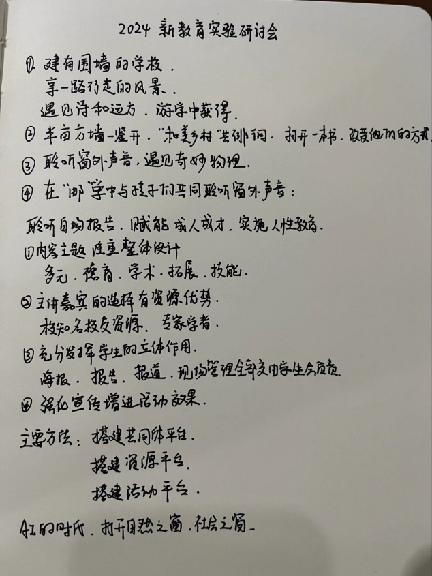 2024 新教育实验研讨会
① 建有围墙的学校.
享一路行走的风景.
遇见诗和远方. 游学中获得.
② 半亩方塘一鉴开. "和美乡村"共徘徊. 打开一本书. 改变他们的方式
③ 聆听窗外声音, 遇见奇妙物理.
④ 在 学中与孩子们共同聆听窗外声音:
聆听 报告. 赋能成人成才. 实施人性教育.
①内容主题 注重整体设计
多元. 德育. 学术. 拓展. 技能.
②主讲嘉宾的选择有资源优势.
校知名校友资源. 专家学者.
③充分发挥学生的主体作用.
海报. 报告. 报道. 现场管理全部交由学生会负责
④ 强化宣传增进活动效果.
主要方法: 搭建共同体平台.
搭建资源平台.
搭建活动平台.
AI的时代. 打开自然之窗. 社会之窗.